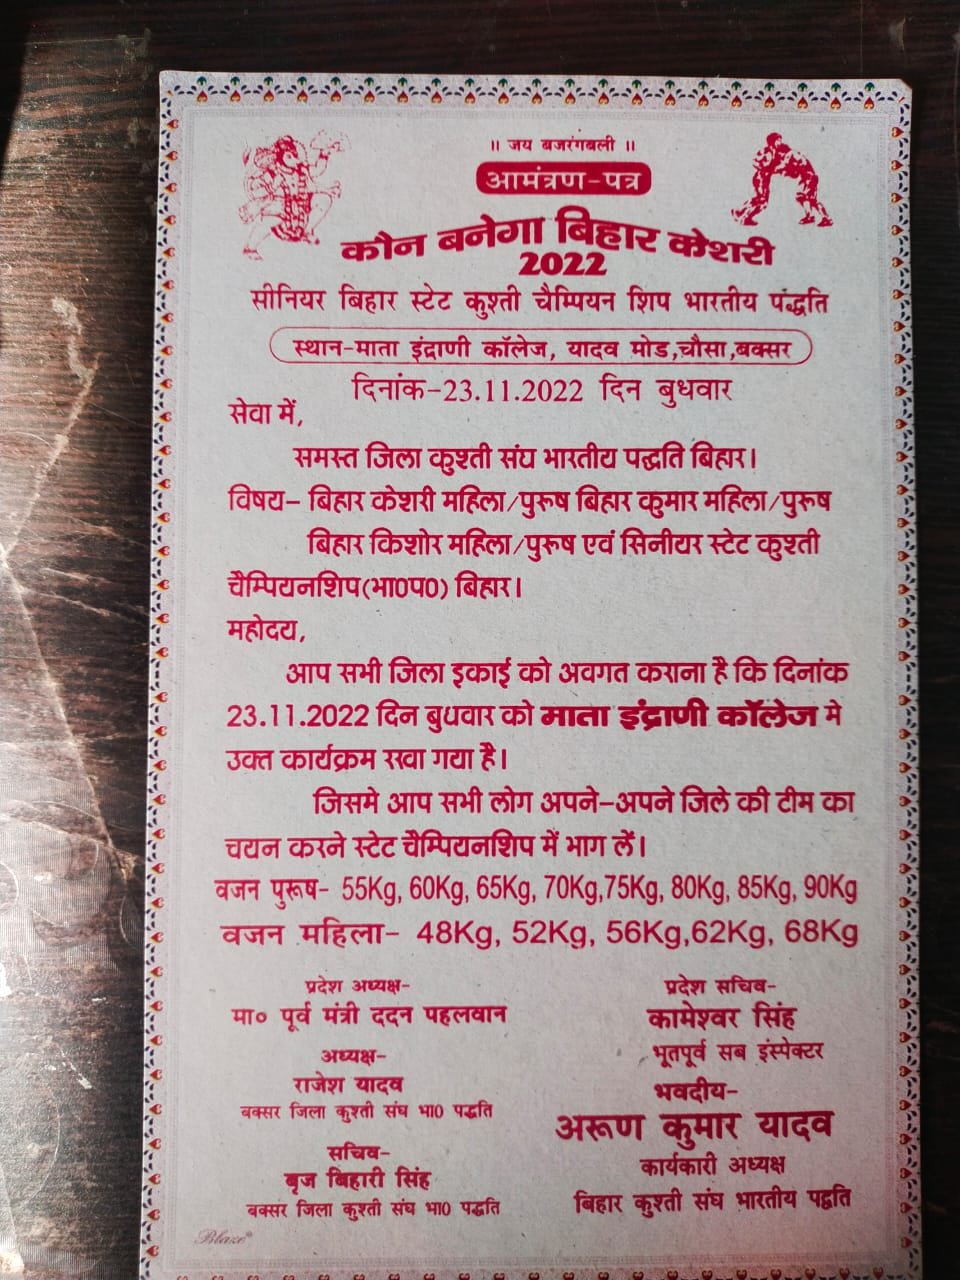 ॥ जय बजरंगबली ॥
आमंत्रण-पत्र
कौन बनेगा बिहार केशरी
2022
सीनियर बिहार स्टेट कुश्ती चैम्पियन शिप भारतीय पद्धति
स्थान-माता इंद्राणी कॉलेज, यादव मोड,चौसा,बक्सर
दिनांक-23.11.2022 दिन बुधवार
सेवा में,
समस्त जिला कुश्ती संघ भारतीय पद्धति बिहार।
विषय- बिहार केशरी महिला/पुरूष बिहार कुमार महिला/पुरूष
बिहार किशोर महिला/पुरूष एवं सिनीयर स्टेट कुश्ती
चैम्पियनशिप(भा0प0) बिहार।
महोदय,
आप सभी जिला इकाई को अवगत कराना है कि दिनांक
23.11.2022 दिन बुधवार को माता इंद्राणी कॉलेज मे
उक्त कार्यक्रम रखा गया है।
जिसमे आप सभी लोग अपने-अपने जिले की टीम का
चयन करने स्टेट चैम्पियनशिप में भाग लें।
वजन पुरूष- 55Kg, 60Kg, 65Kg, 70Kg,75Kg, 80Kg, 85Kg, 90Kg
वजन महिला- 48Kg, 52Kg, 56Kg,62Kg, 68Kg
प्रदेश अध्यक्ष-
मा० पूर्व मंत्री ददन पहलवान
अध्यक्ष-
राजेश यादव
बक्सर जिला कुश्ती संघ भा0 पद्धति
सचिव-
बृज बिहारी सिंह
बक्सर जिला कुश्ती संघ भा0 पद्धति
प्रदेश सचिव-
कामेश्वर सिंह
भूतपूर्व सब इंस्पेक्टर
भवदीय-
अरूण कुमार यादव
कार्यकारी अध्यक्ष
बिहार कुश्ती संघ भारतीय पद्वति
Blaze